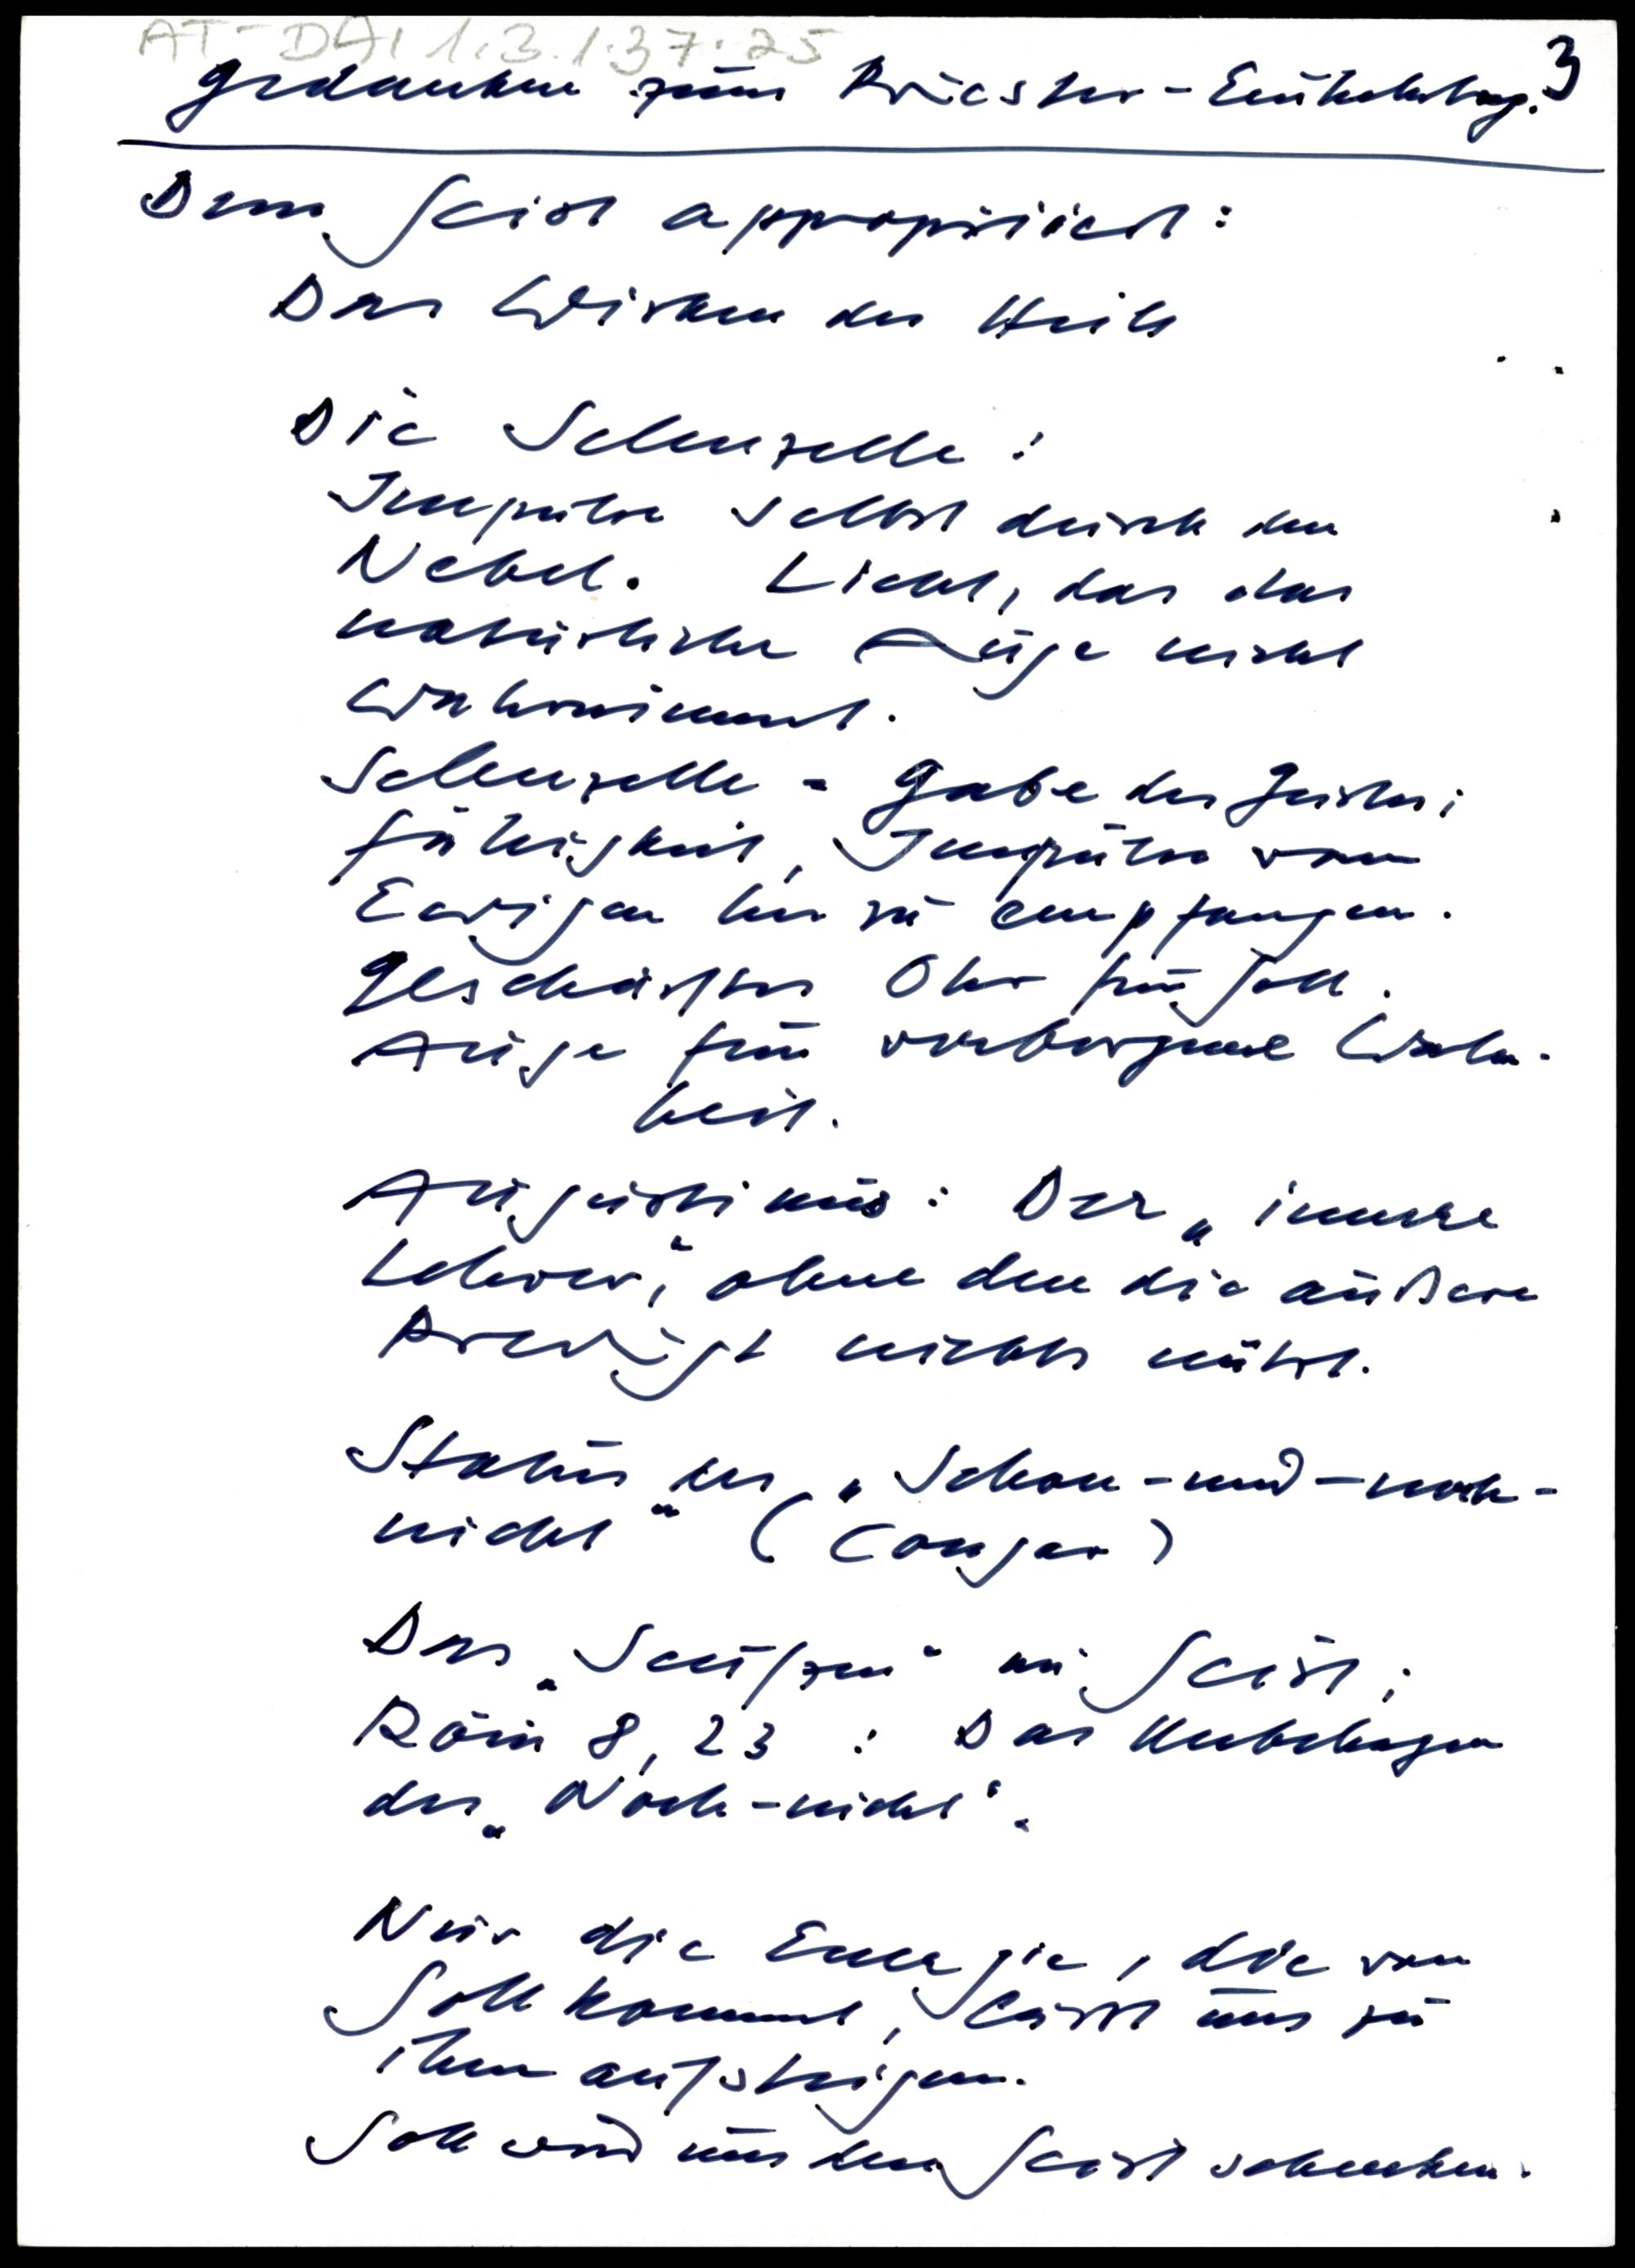 AT-DAI 1.3.1.37.25
3
Gedanken zum Priester-Einkehrtag.
Dem Geist appropriiert:
Das Wirken des Heils
Die Solarzelle:
Impulse selbst durch den
Nebel. Licht, das das
natürliche Auge nicht
wahrnimmt.
Solarzelle = Gabe des Geistes;
Fähigkeit, Impulse vom
Ewigen her zu empfangen.
Geschärftes Ohr für Gott.
Auge für verborgene Wahr-
heit.
Augustinus: Der „innere
Lehrer", ohne den die äußere
Predigt nichts nützt.
Status des „Schon-und-noch-
nicht" (Congar)
Das „Seufzen" im Geist;
Röm 8,23: Das Unbehagen
des „Noch-nicht".
Nur die Energie, die von
Gott kommt, lässt uns zu
ihm aufsteigen.
Gott wird uns den Geist schenken.